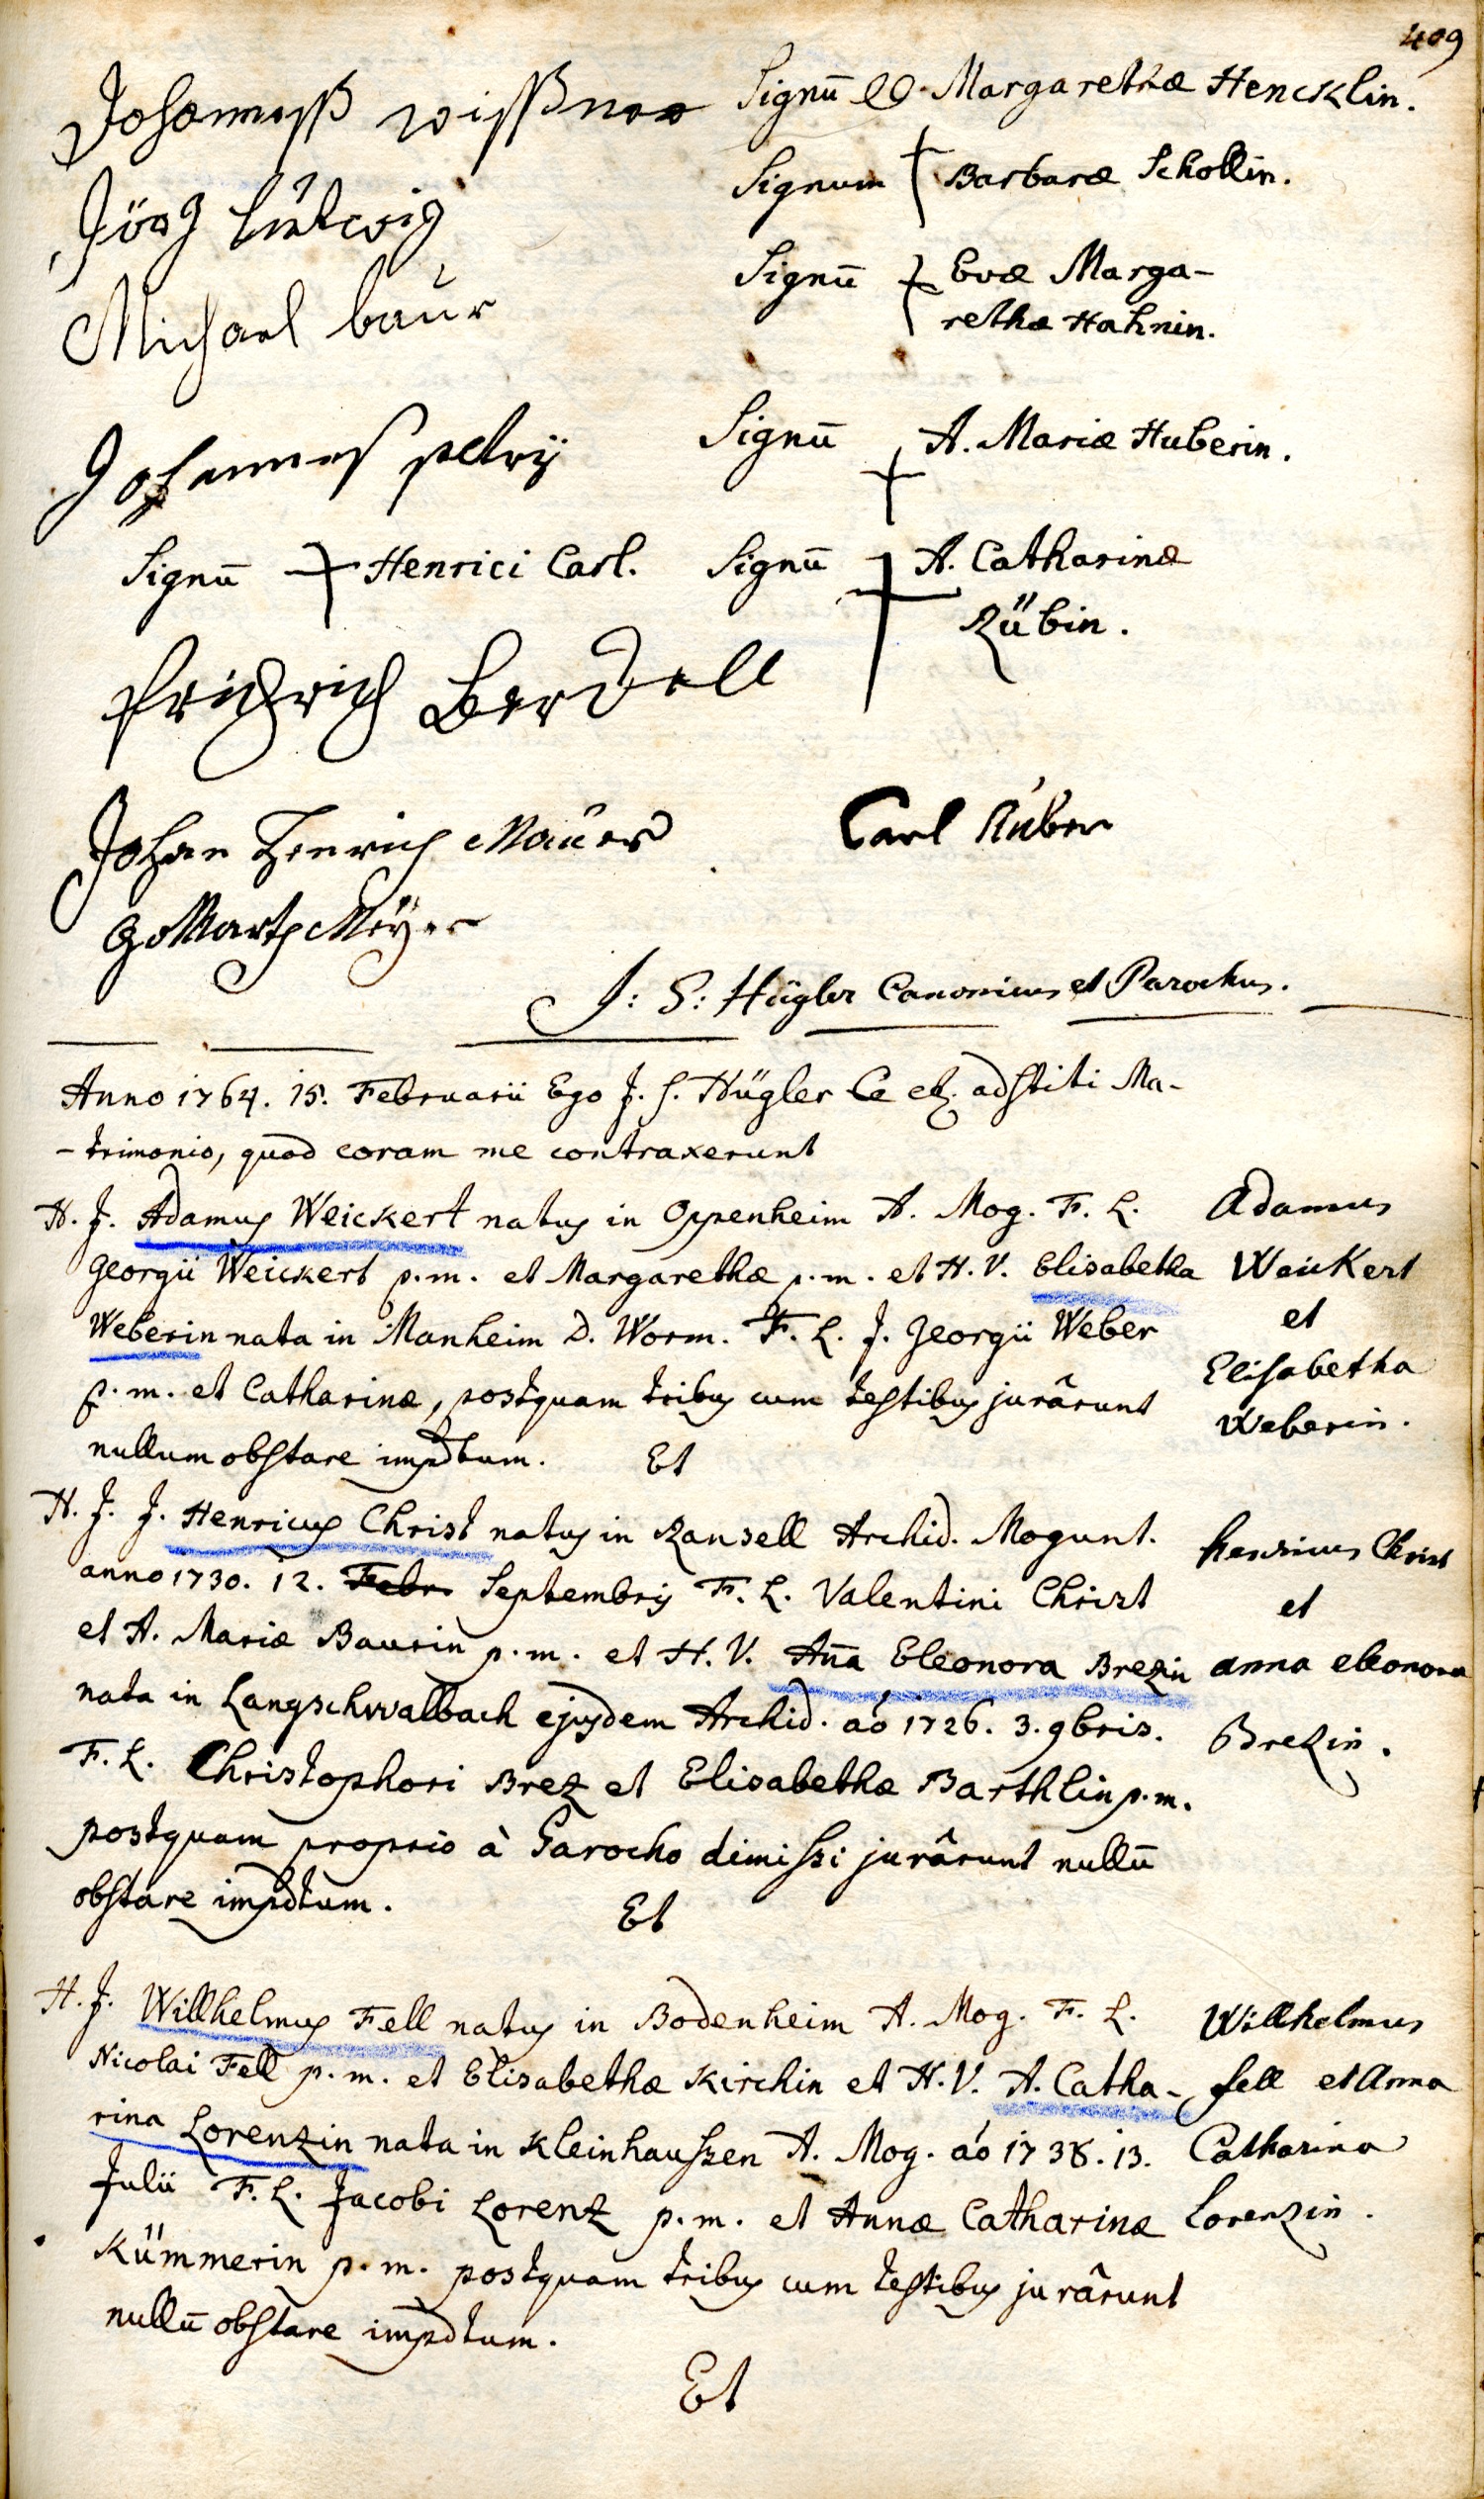 409
Johanneß wißner
Signū ee. Margarethæ Hencklin.
Jörg Ludwig
Signum Barbaræ Schollin.
Michael baur
Signū Evæ Marga-
rethæ Hahnin.
Johannes petrÿ
Signū A. Mariæ Huberin.
Signū Henrici Carl.
Signū A. Catharinæ
Rübin.
fridrich Berdell
Johan Henrich Maurer
Carl Huber
Gotthart Meÿer
J: S: Hügler Canonicus et Parochus.
Anno 1764. 15. Februarii Ego J. S. Hügler Ce etz. adstiti Ma-
-trimonio, quod coram me contraxerunt
H. J. Adamus Weickert natus in Oppenheim A. Mog. F. L.
Georgii Weickert p.m. et Margarethæ p.m. et H. V. Elisabetha
Weberin nata in Manheim D. Worm. F. L. J. Georgii Weber
p.m. et Catharinæ, postquam tribus cum testibus jurârunt
nullum obstare impdtum.
Et
Adamus
Weickert
et
Elisabetha
Weberin.
H. J. J. Henricus Christ natus in Ransell Archid. Mogunt.
anno 1730. 12. Febr. Septembris F. L. Valentini Christ
et A. Mariæ Baurin p.m. et H. V. Aña Eleonora Brezin
nata in Langschwalbach ejusdem Archid. aó 1726. 3. 9bris.
F. L. Christophori Brez et Elisabethæ Barthlin p.m.
postquam proprio à Parocho dimissi jurârunt nullū
obstare impdtum.
Et
henricus Christ
et
anna eleonora
Brezin.
H. J. Willhelmus Fell natus in Bodenheim A. Mog. F. L.
Nicolai Fell p.m. et Elisabethæ Kirchin et H. V. A. Catha-
rina Lorenzin nata in Kleinhaussen A. Mog. aó 1738. 13.
Julii F. L. Jacobi Lorenz p.m. et Annæ Catharinæ
Kümmerin p.m. postquam tribus cum testibus jurârunt
nullū obstare impdtum.
Et
Willhelmus
fell et Anna
Catharina
Lorenzin.